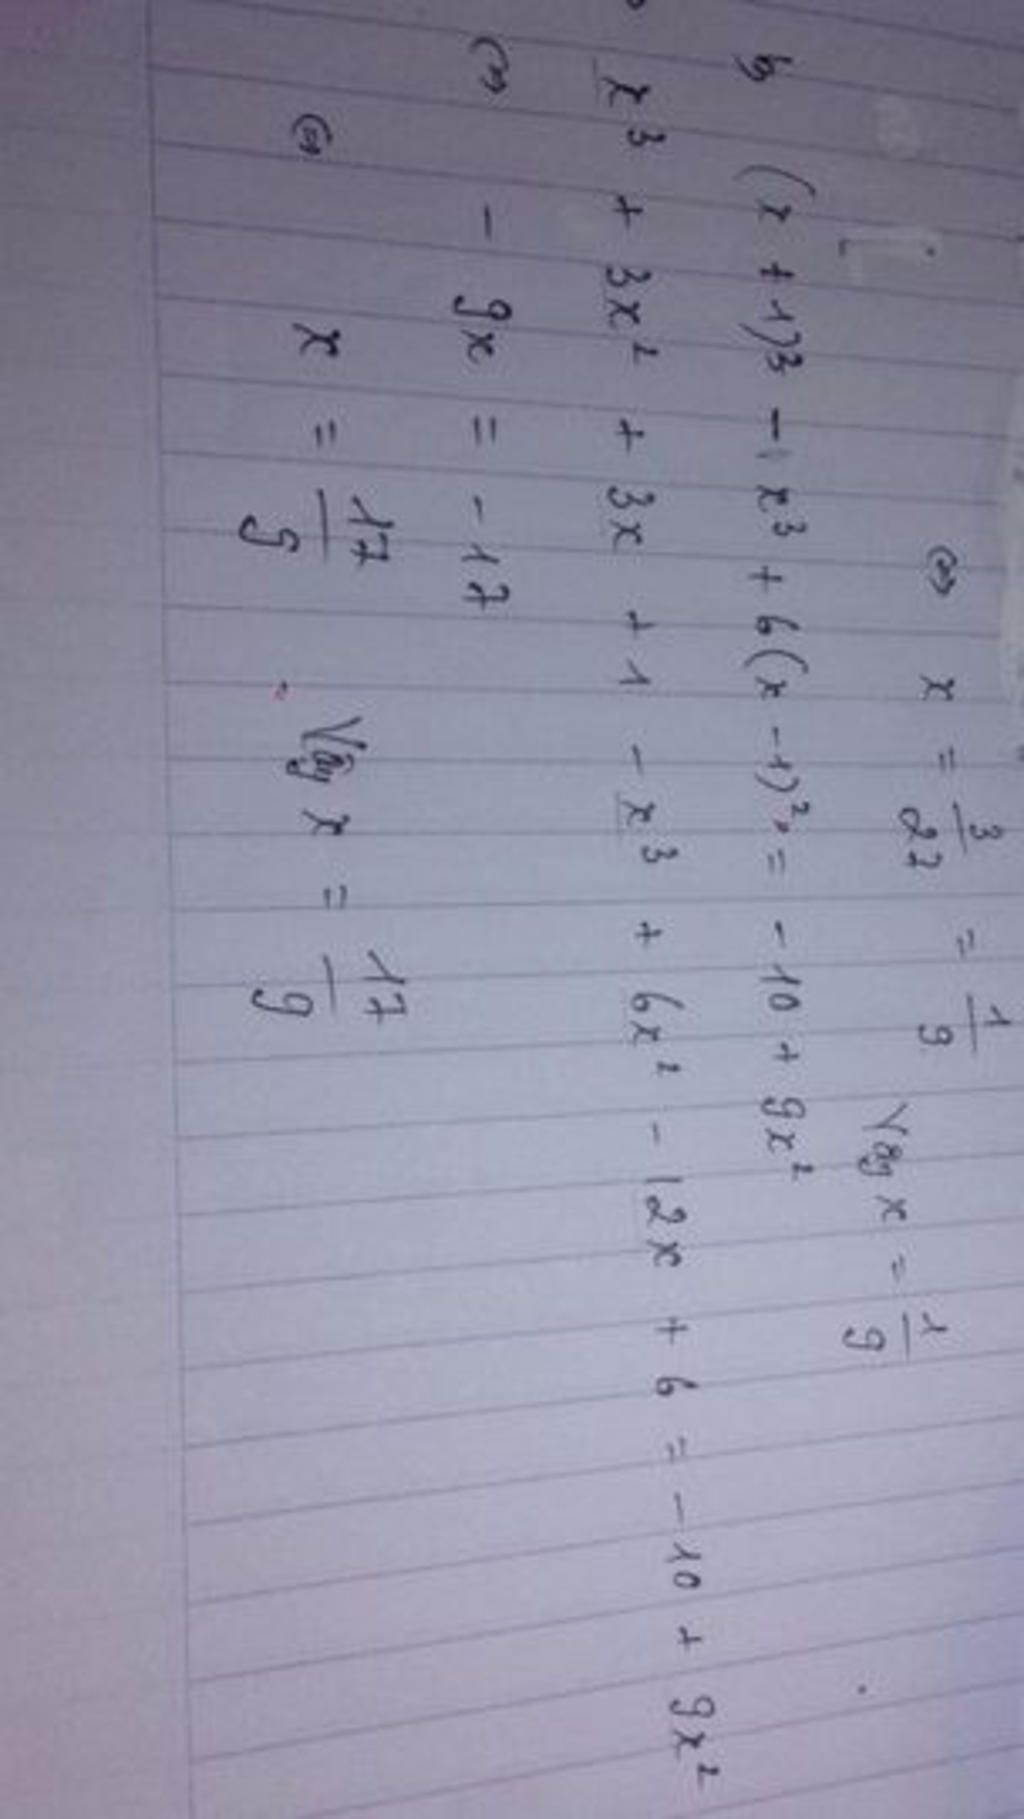 ⇔ x = 3/27 = 1/9 Vậy x = 1/9
b, (x + 1)³ - x³ + 6(x - 1)² = - 10 + 9x²
x³ + 3x² + 3x + 1 - x³ + 6x² - 12x + 6 = - 10 + 9x²
⇔ - 9x = - 17
⇔ x = 17/9 Vậy x = 17/9